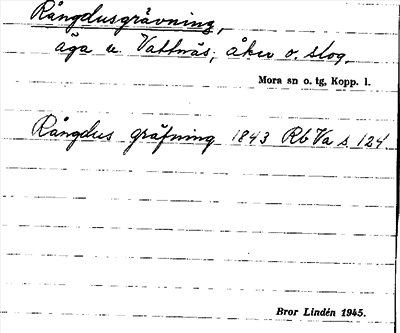 Rångdusgrävning,
äga u. Vattnäs; åker o. slog.
Mora sn o. tg, Kopp. l.
Rångdus gräfning 1843 Rb Va s 124.
Bror Lindén 1945.